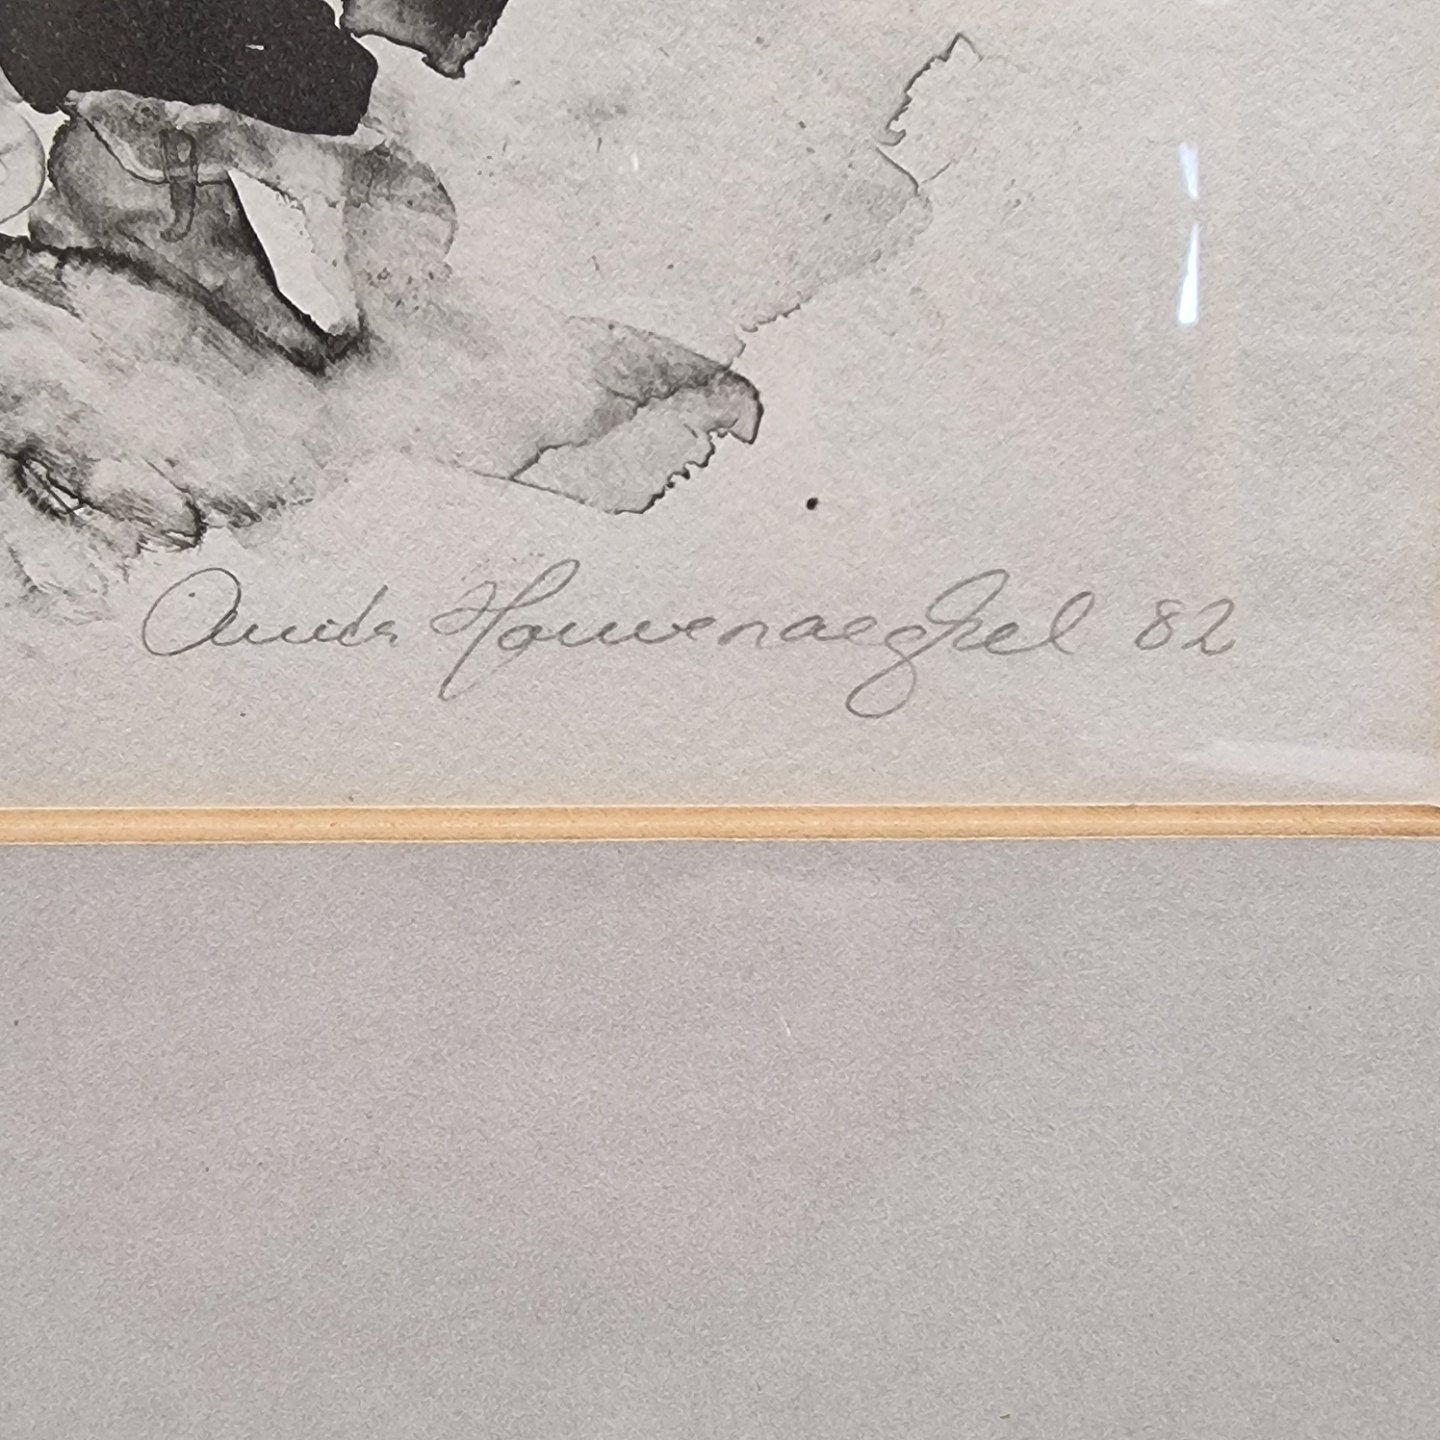 Anita Houwenaeghel 82